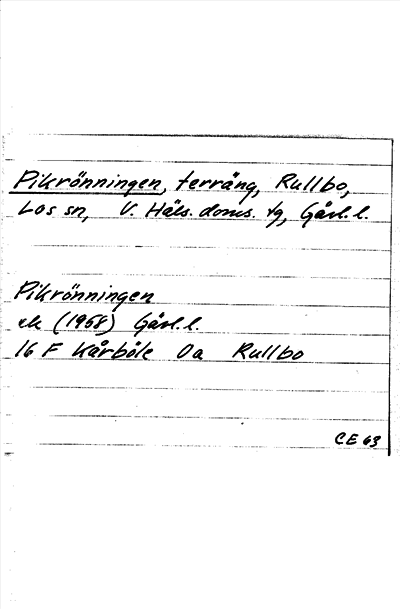 Pikrönningen, terräng, Rullbo,
Los sn, V. Häls. doms. tg, Gävl. l.
Pikrönningen
ek (1968) Gävl. l.
16 F Kårböle 0a Rullbo
CE 63